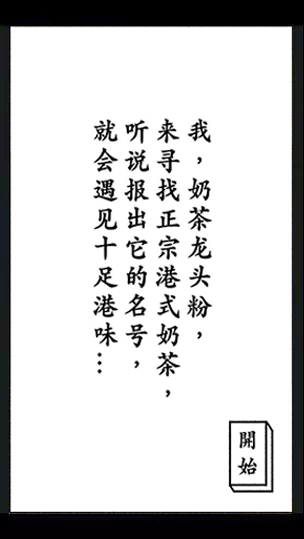 我，奶茶龙头粉，
来寻找正宗港式奶茶，
听说报出它的名号，
就会遇见十足港味…
開始